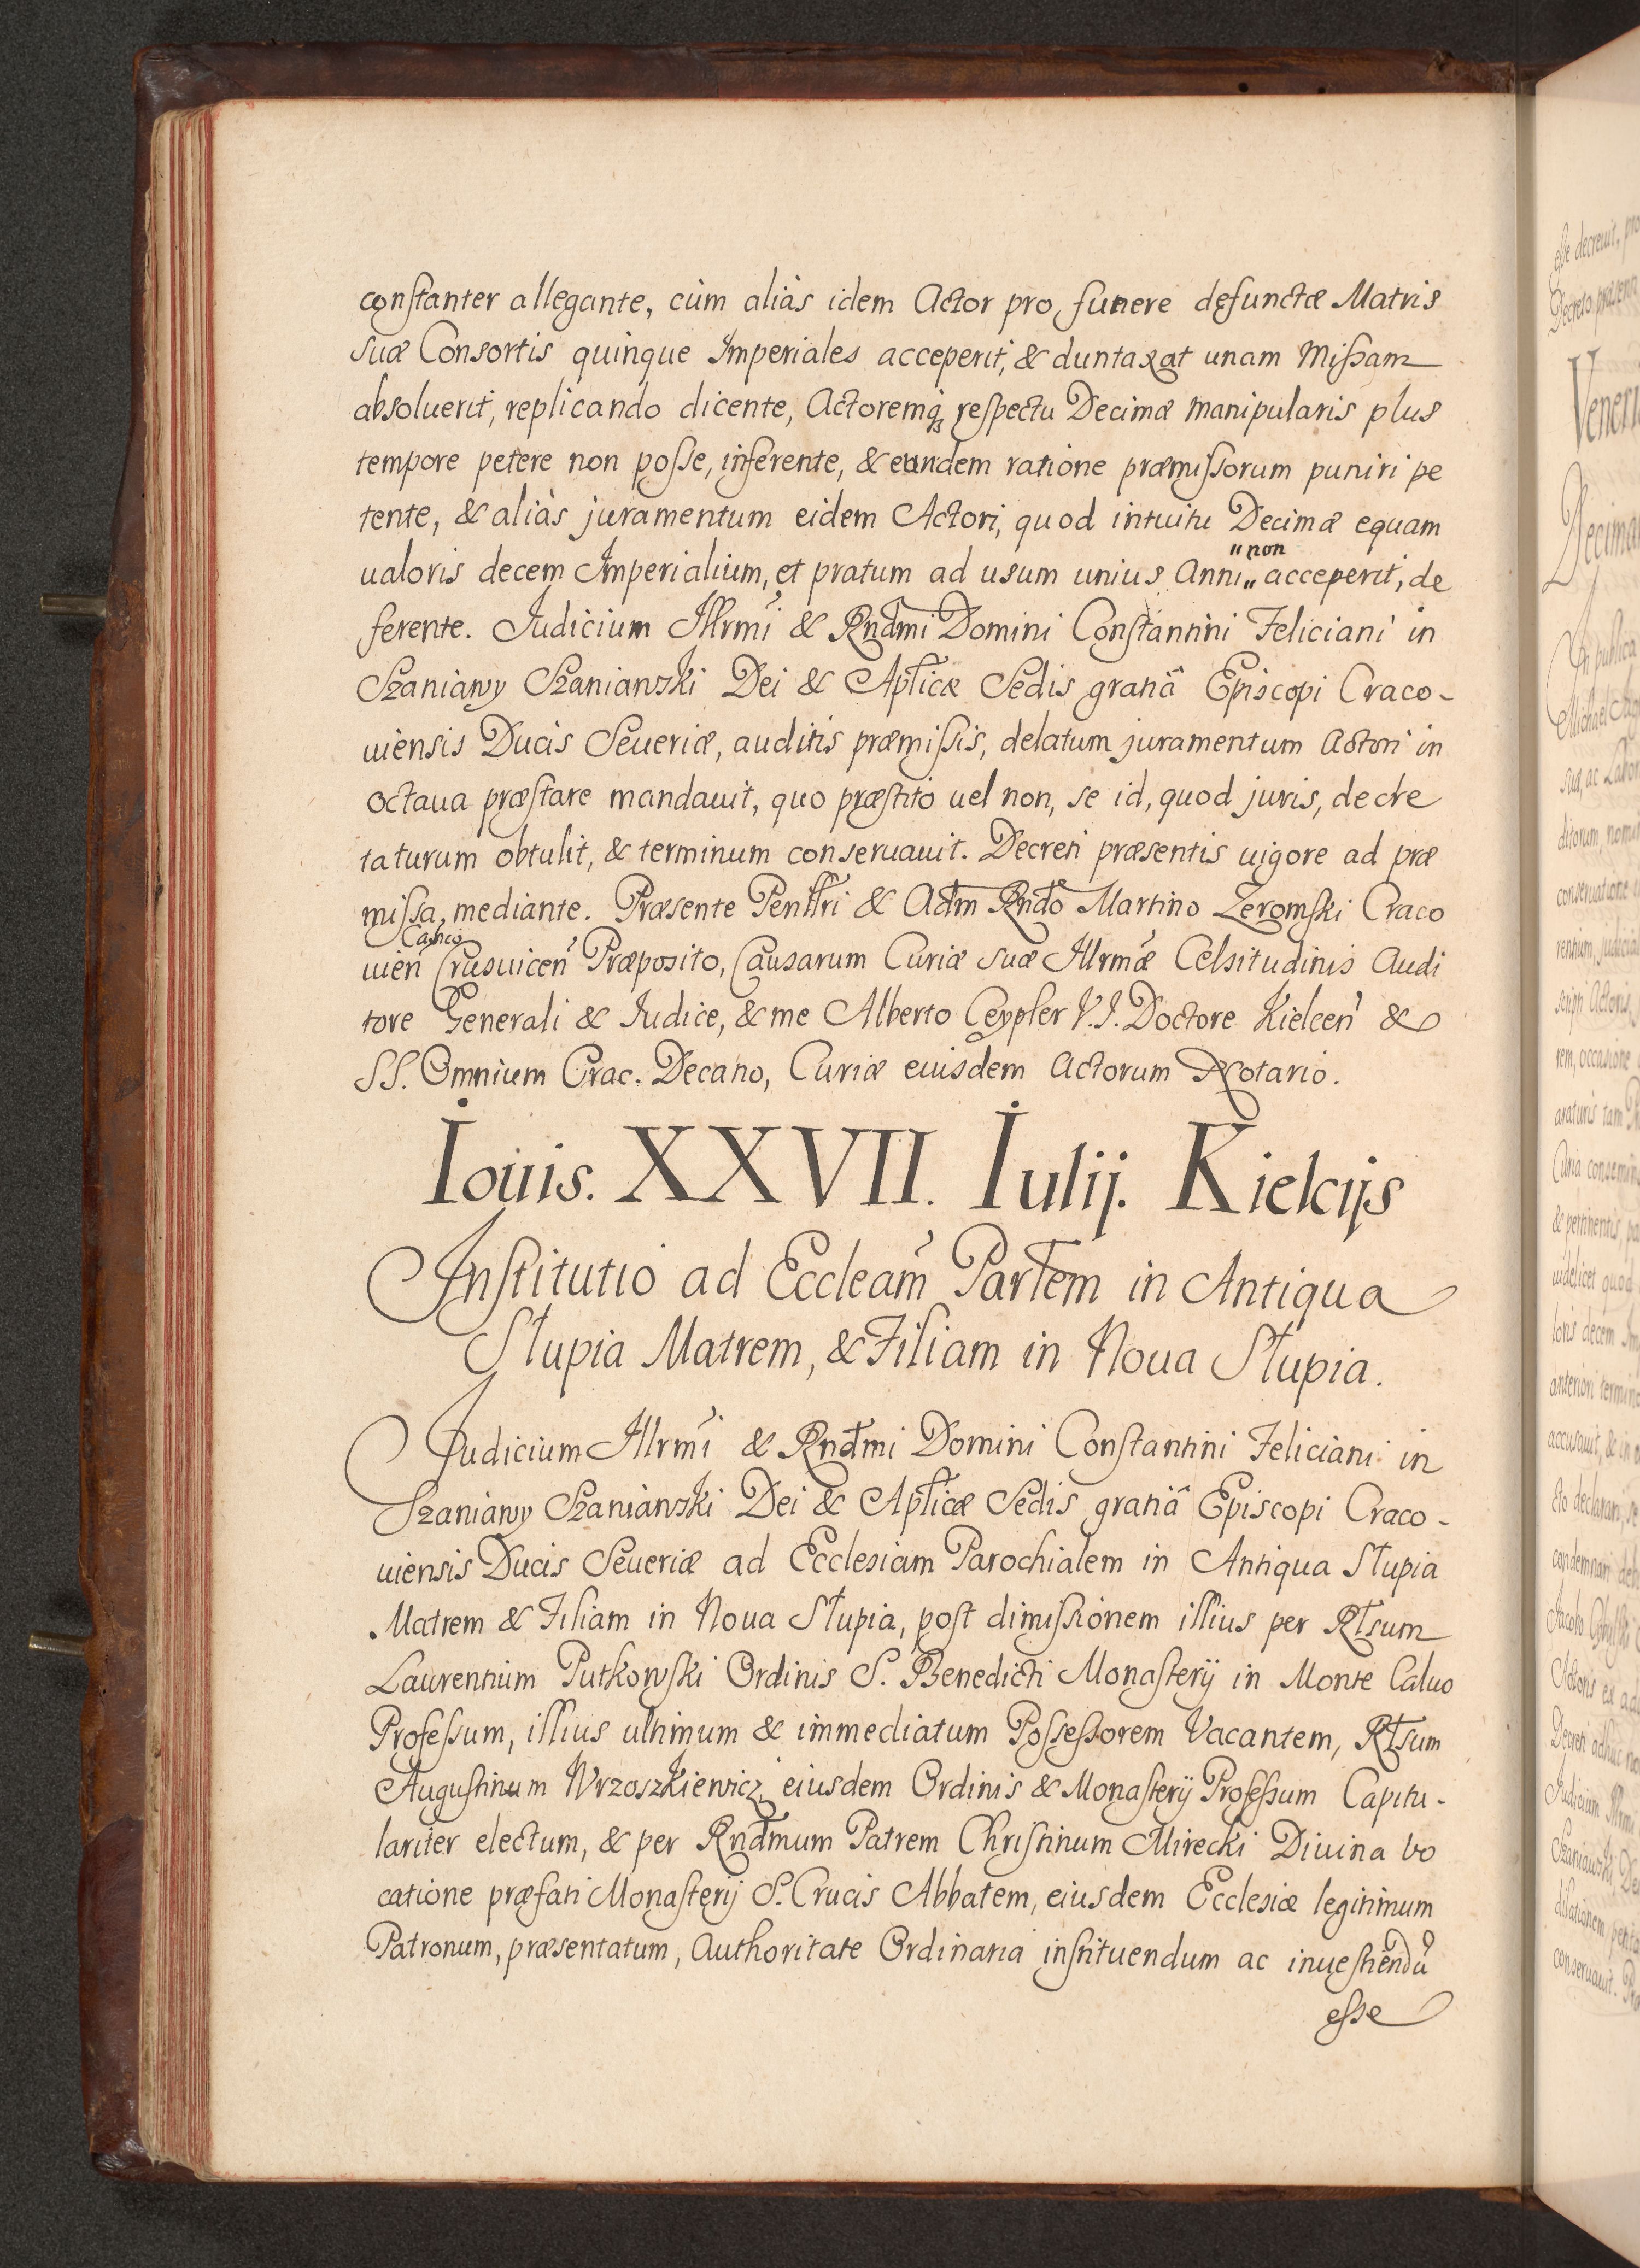 constanter allegante, cùm aliàs idem Actor pro funere defunctæ Matris
suæ Consortis quinque Imperiales acceperit, & duntaxat unam Missam
absoluerit, replicando dicente, Actoremq; respectu Decimæ manipularis plus
tempore petere non posse, inferente, & eundem ratione præmissorum puniri pe
tente, & aliàs juramentum eidem Actori, quod intuitu Decimæ equam
"non
ualoris decem Imperialium, et pratum ad usum unius Anni„ acceperit, de
ferente. Judicium Illrmi & Rndmi Domini Constantini Feliciani in
Szaniawy Szaniawski Dei & Aplicæ Sedis gratiâ Episcopi Craco-
uiensis Ducis Seueriæ, auditis præmissis, delatum juramentum Actori in
octaua præstare mandauit, quo præstito uel non, se id, quod juris, decre
taturum obtulit, & terminum conseruauit. Decreti præsentis uigore ad præ
missa, mediante. Præsente Penllri & Adm Rndo Martino Zeromski Craco
Canco
uien Crusuicen Præposito, Causarum Curiæ suæ Illrmæ Celsitudinis Audi
tore Generali & Iudice, & me Alberto Ceypler V.J. Doctore Kielcen &
SS. Omnium Crac. Decano, Curiæ eiusdem Actorum Notario.
Iouis. XXVII. Iulij. Kielcijs
Institutio ad Eccleam Parlem in Antiqua
Słupia Matrem, & Filiam in Noua Słupia.
Judicium Illrmi & Rndmi Domini Constantini Feliciani in
Szaniawy Szaniawski Dei & Aplicæ Sedis gratiâ Episcopi Craco-
uiensis Ducis Seueriæ ad Ecclesiam Parochialem in Antiqua Słupia
Matrem & Filiam in Noua Słupia, post dimissionem illius per Rlsum
Laurentium Putkowski Ordinis S. Benedicti Monasterij in Monte Caluo
Professum, illius ultimum & immediatum Possessorem Vacantem, Rlsum
Augustinum Wrzoszkiewicz, eiusdem Ordinis & Monasterij Professum Capitu-
lariter electum, & per Rndmum Patrem Christinum Mirecki Diuina Vo
catione præfati Monasterij S. Crucis Abbatem, eiusdem Ecclesiæ legitimum
Patronum, præsentatum, Authoritate Ordinaria instituendum ac inuestiendũ
esse